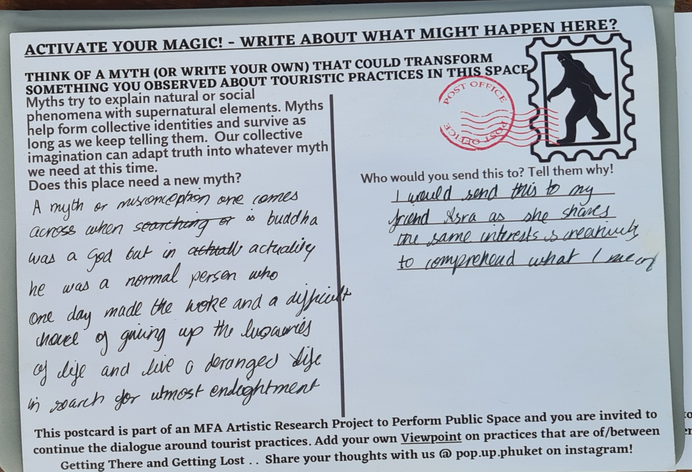 ACTIVATE YOUR MAGIC! - WRITE ABOUT WHAT MIGHT HAPPEN HERE?
THINK OF A MYTH (OR WRITE YOUR OWN) THAT COULD TRANSFORM
SOMETHING YOU OBSERVED ABOUT TOURISTIC PRACTICES IN THIS SPACE
Myths try to explain natural or social
phenomena with supernatural elements. Myths
help form collective identities and survive as
long as we keep telling them. Our collective
imagination can adapt truth into whatever myth
we need at this time.
Does this place need a new myth?
A myth or misconception one comes
across when searching or is buddha
was a God but in actually actuality
he was a normal person who
one day made the woke and a difficult
choice of giving up the luxuries
of life and live a deranged life
in search for utmost
POST OFFICE
POST OFFICE
Who would you send this to? Tell them why!
I would send this to my
friend Isra as she shares
the same interests &
to comprehend what I
This postcard is part of an MFA Artistic Research Project to Perform Public Space and you are invited to
continue the dialogue around tourist practices. Add your own Viewpoint on practices that are of/between
Getting There and Getting Lost . . Share your thoughts with us @ pop.up.phuket on instagram!